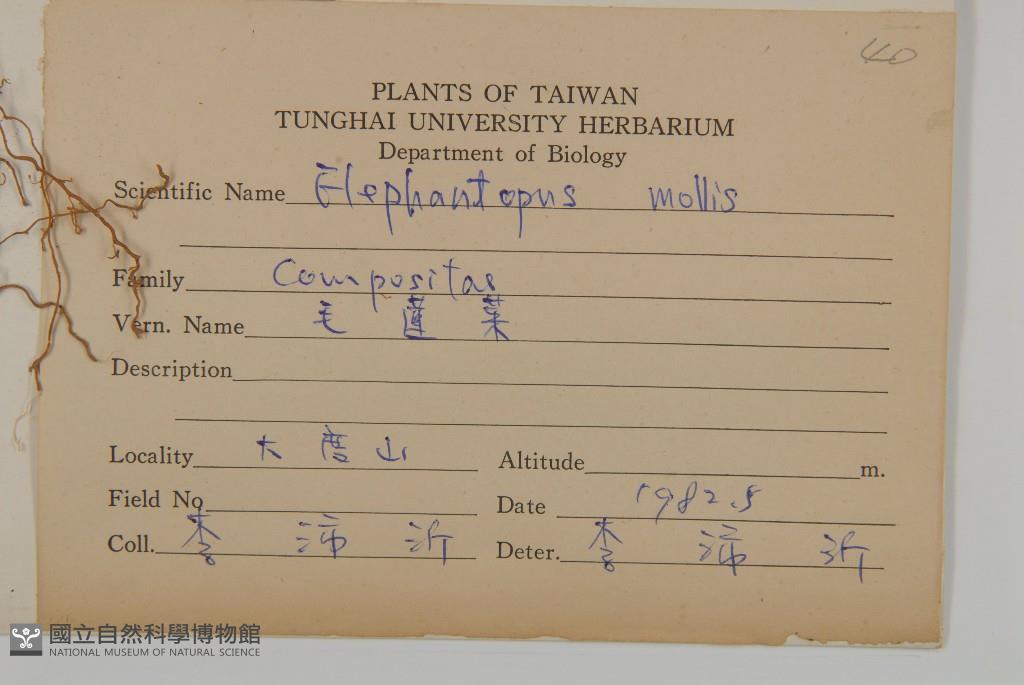 40
PLANTS OF TAIWAN
TUNGHAI UNIVERSITY HERBARIUM
Department of Biology
Scientific Name Elephantopus mollis
Family Compositae
Vern. Name 毛蓮菜
Description
Locality 大度山 Altitude m.
Field No Date 1982.5
Coll. 李沛沂 Deter. 李沛沂
國立自然科學博物館
NATIONAL MUSEUM OF NATURAL SCIENCE